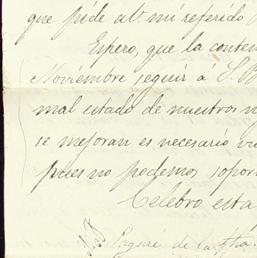 que pide al mi referido
Espero, que la conten
Noviembre seguir á S. 
mal estado de nuestros n
se mejoran es necesario vi
pues no podemos sopor
Celebro está
Pagaré de la